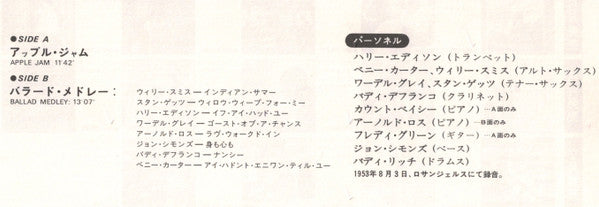 ●SIDE A
アップル・ジャム
APPLE JAM 11'42"
●SIDE B
バラード・メドレー：
BALLAD MEDLEY: 13'07'
ウィリー・スミス ー インディアン・サマー
スタン・ゲッツ ー ウィロウ・ウィープ・フォー・ミー
ハリー・エディソン ー イフ・アイ・ハッド・ユー
ワーデル・グレイ ー ゴースト・オブ・ア・チャンス
アーノルド・ロス ー ラヴ・ウォークド・イン
ジョン・シモンズ ー 身も心も
バディ・デフランコ ー ナンシー
ベニー・カーター ー アイ・ハドント・エニワン・ティル・ユー
パーソネル
ハリー・エディソン（トランペット）
ベニー・カーター、ウィリー・スミス（アルト・サックス）
ワーデル・グレイ、スタン・ゲッツ（テナー・サックス）
バディ・デフランコ（クラリネット）
カウント・ベイシー（ピアノ）―A面のみ
アーノルド・ロス（ピアノ）―B面のみ
フレディ・グリーン（ギター）―A面のみ
ジョン・シモンズ（ベース）
バディ・リッチ（ドラムス）
1953年8月3日、ロサンジェルスにて録音。